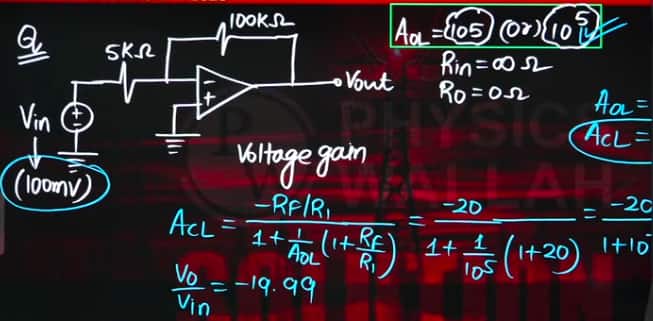 Q
5KΩ
100KΩ
Vout
Vin
(100mV)
AOL = 105 (or) 10^5
Rin = ∞ Ω
Ro = 0Ω
AOL =
ACL =
PHYSICS
WALLAH
Voltage gain
ACL = (-RF/R1) / (1 + 1/AOL (1 + RF/R1)) = -20 / (1 + 1/10^5 (1+20)) = -20 / 1+10
Vo/Vin = -19.99